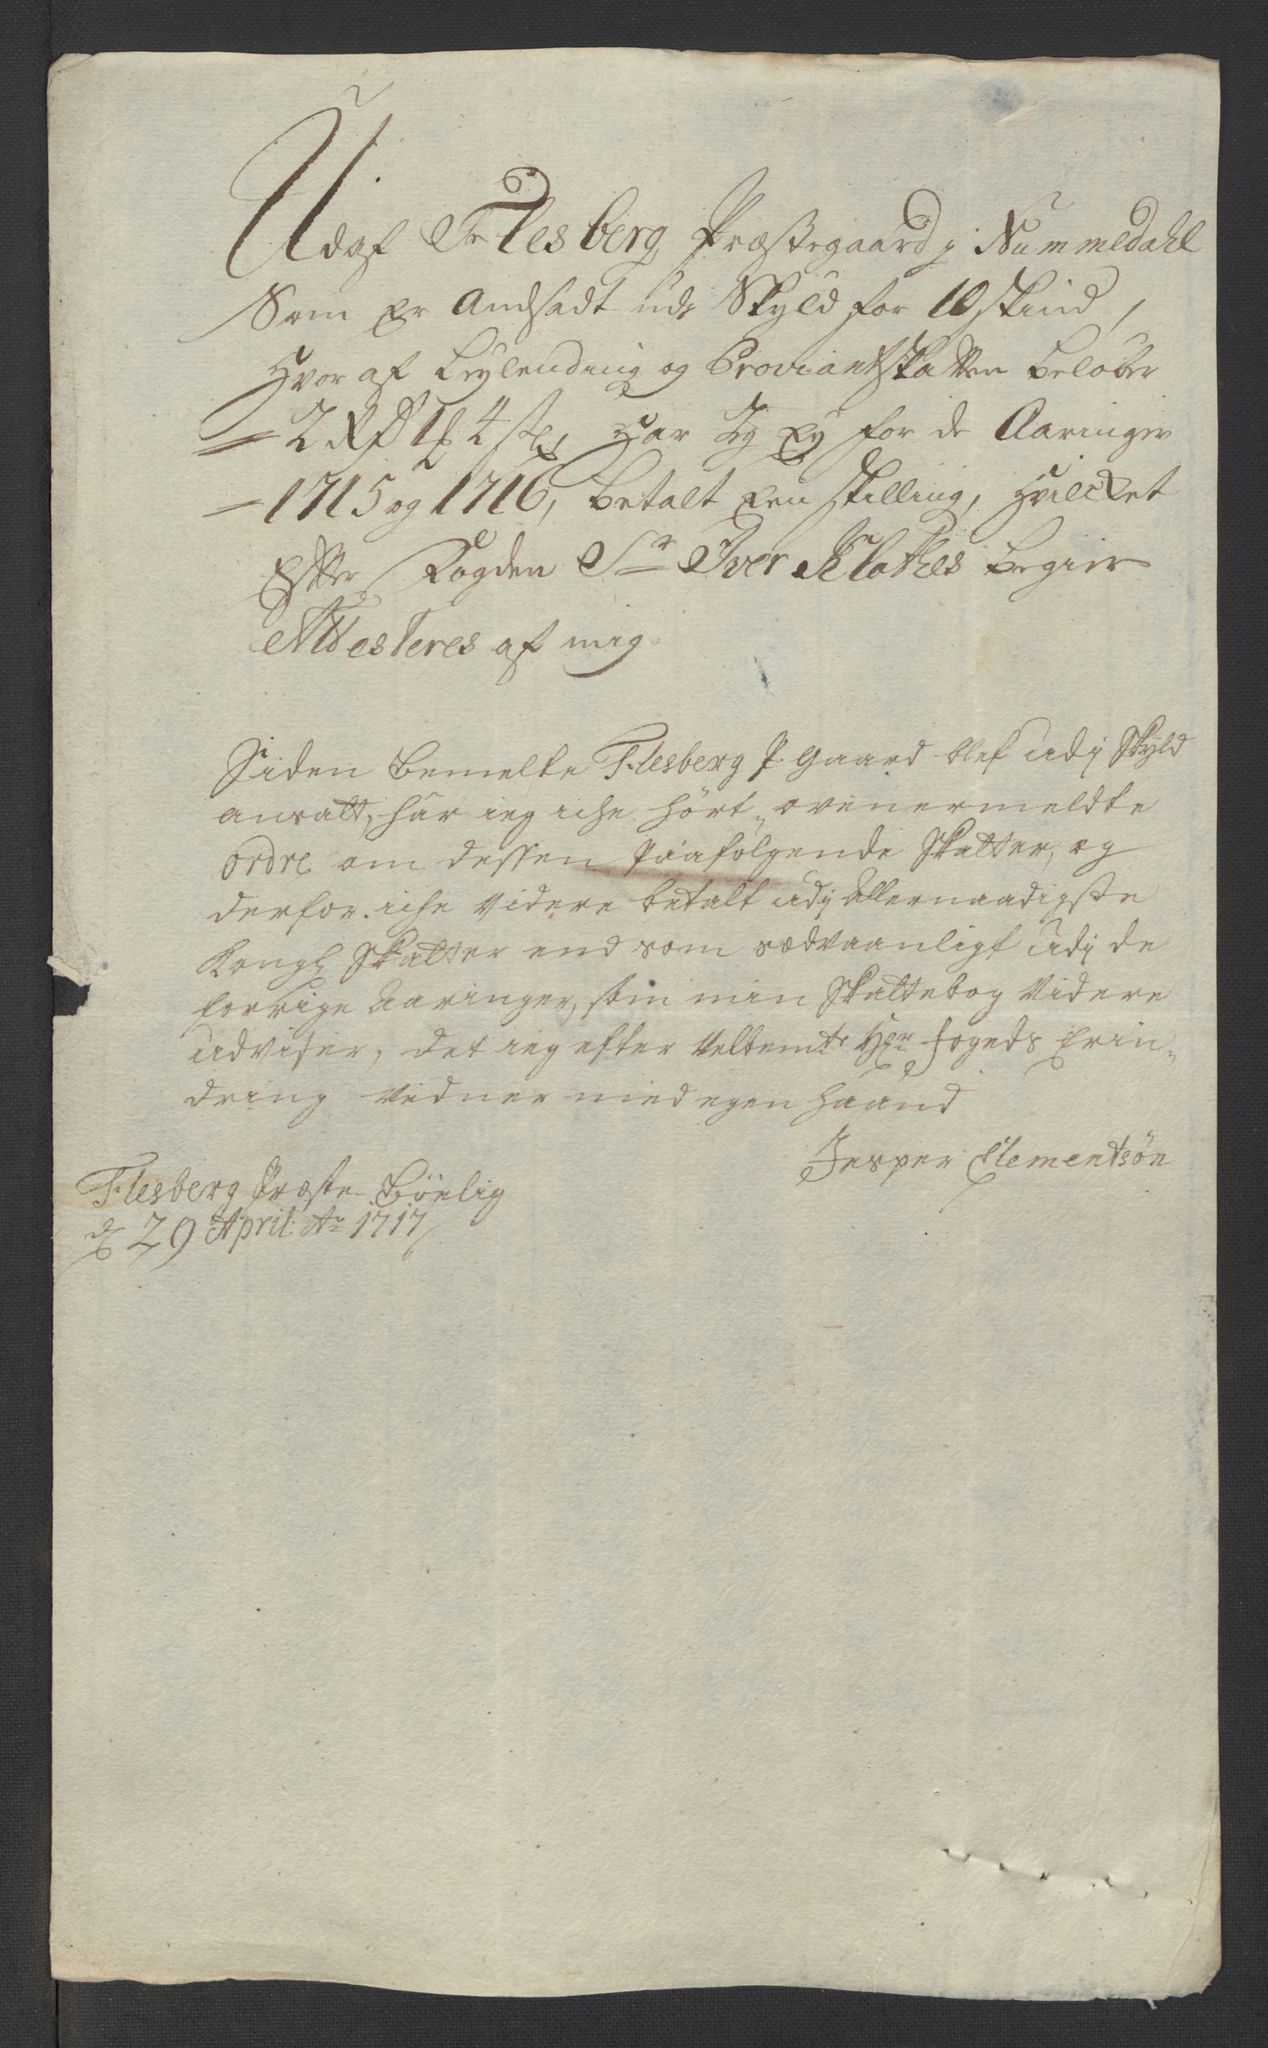 Udaf Flesberg Præstegaard j Nummedahl
Som Er Andsadt udj Skyld for 10 skind,
Hvor af Leylending og Proviantskatten beløber
2 Rdr 1 ort 4 sk, Har Jeg Ey for de Aaringer
1715 og 1716, betalt Een skilling, Hvilcket
Effter Fogden Sr Iver Klothes begier
Attesteres af mig
Siden bemelte Flesberg P. Gaard blef udj Skyld
ansatt, har ieg iche hört ovenermeldte
ordre om dessen Paafölgende Skatter, og
derfor iche videre betalt udj Allernaadigste
Kongl Skatter end som sædvaanligt udj de
forrige Aaringer, som min Skattebog videre
udviser, det ieg efter velbemte Hr fogeds Erin-
dring vidner med egen haand
Jesper Clementsön
Flesberg Præste Böelig
d 29 April Ao 1717